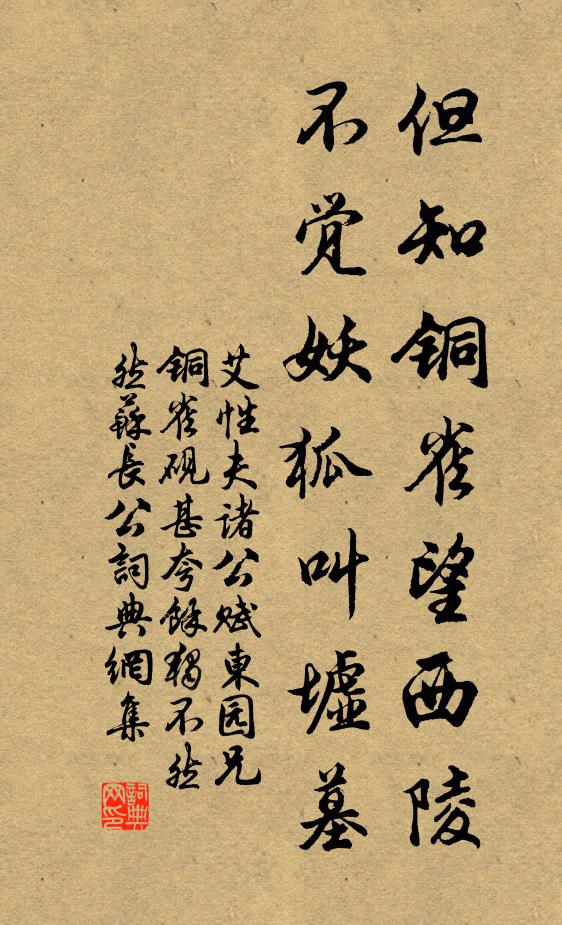 但知铜雀望西陵
不觉妖狐叫墟墓
艾性夫诸公赋東园兄
铜雀砚甚夸餘独不然
然蘇長公詞典網集
詞典網印